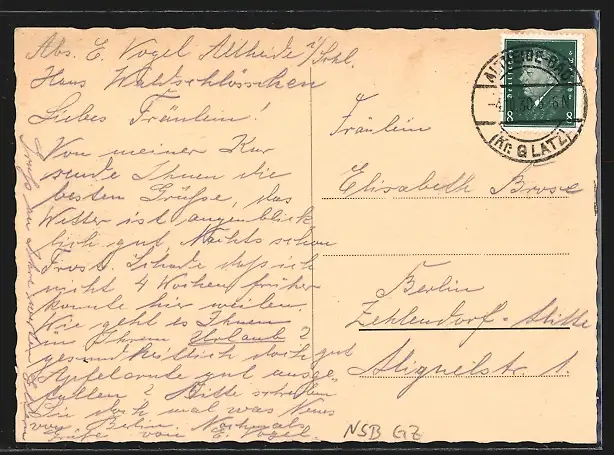 Abs. E. Vogel Altheide i/Schl.
Haus Waldschlösschen
Liebes Fräulein!
Von meiner Kur
sende Ihnen die
besten Grüße, das
Wetter ist augenblick
lich gut, Nachts schon
Frost. Schade daß ich
nicht 4 Wochen früher
konnte hier weilen.
Wie geht es Ihnen
in Ihrem Urlaub?
gesundheitlich doch gut
Apfelernte gut ausge-
fallen? Bitte schreiben
Sie doch mal was neues
von Berlin. Nochmals
Grüße von E. Vogel.
ALTHEIDE-BAD
(Kr. GLATZ)
8 8
Fräulein
Elisabeth Brose
Berlin
Zehlendorf-Mitte
str. 1.
NSB GZ